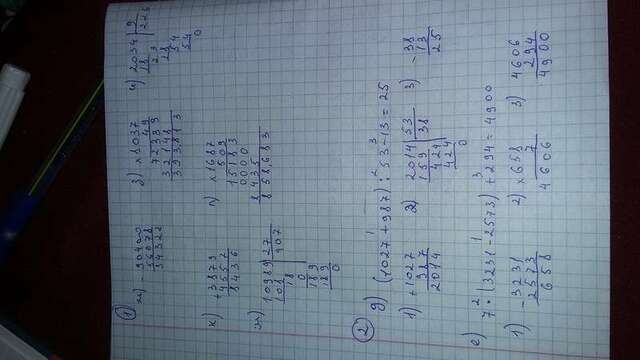 1
ж) - 90400 з) × 8037 и) 2034 | 9
56078 49 18 226
34322 72333 23
32148 18
393,813 54
54
0
к) + 3879 л) × 1687
4557 509
8436 15183
0000
м) 10989 | 27 8435
108 407 858,683
18
0
189
189
0
2
д) (1027 + 987) : 53 - 13 = 25
1) + 1027 2) 2014 | 53 3) - 38
987 159 38 13
2014 424 25
424
0
е) 7 · (3231 - 2573) + 294 = 4900
1) - 3231 2) × 658 3) 4606
2573 7 294
658 4606 4900